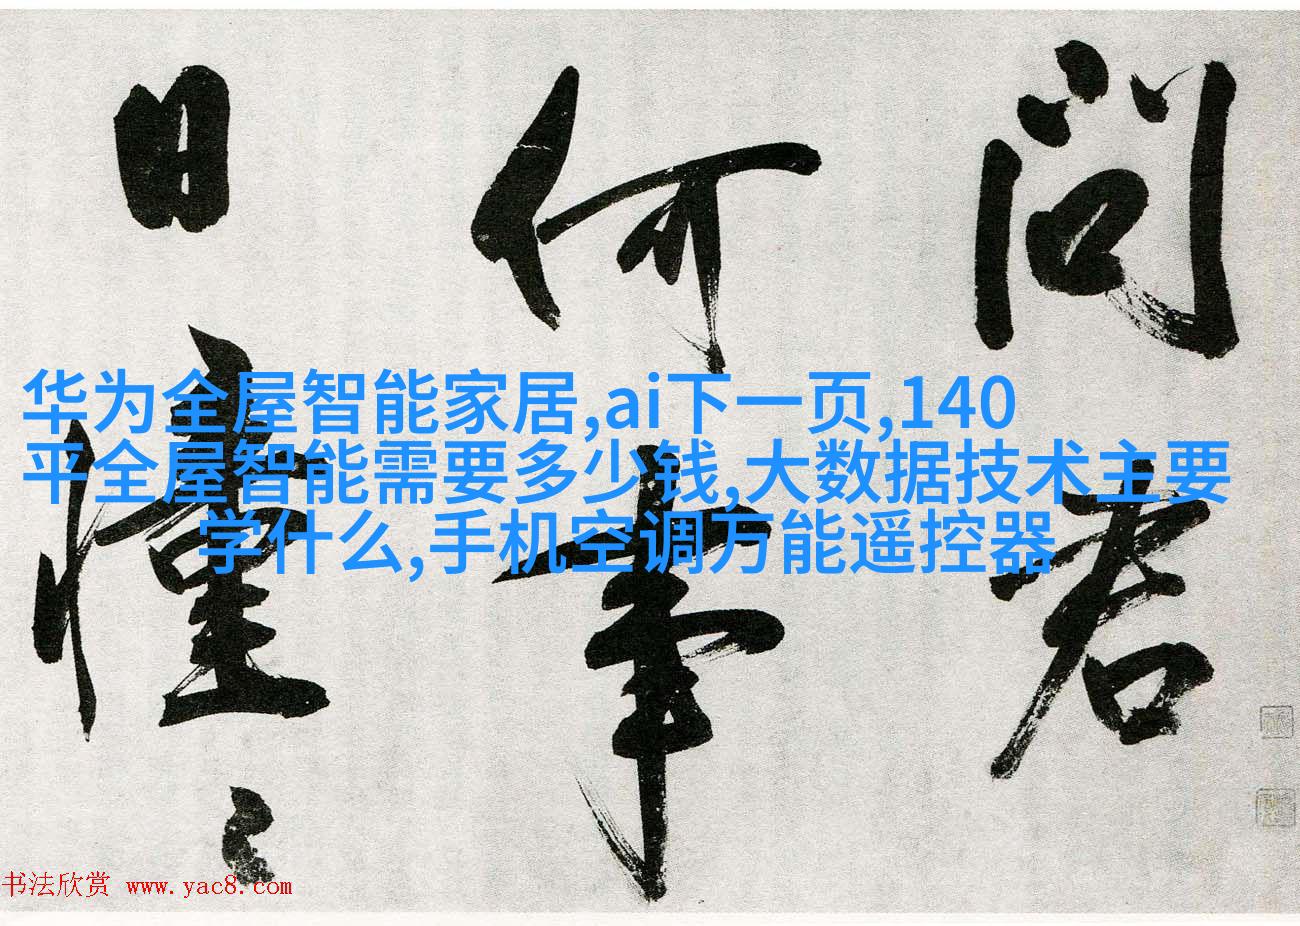 问君
何事
日憧々
华为全屋智能家居,ai下一页,140
平全屋智能需要多少钱,大数据技术主要
学什么,手机空调万能遥控器
书法欣赏 www.yac8.com